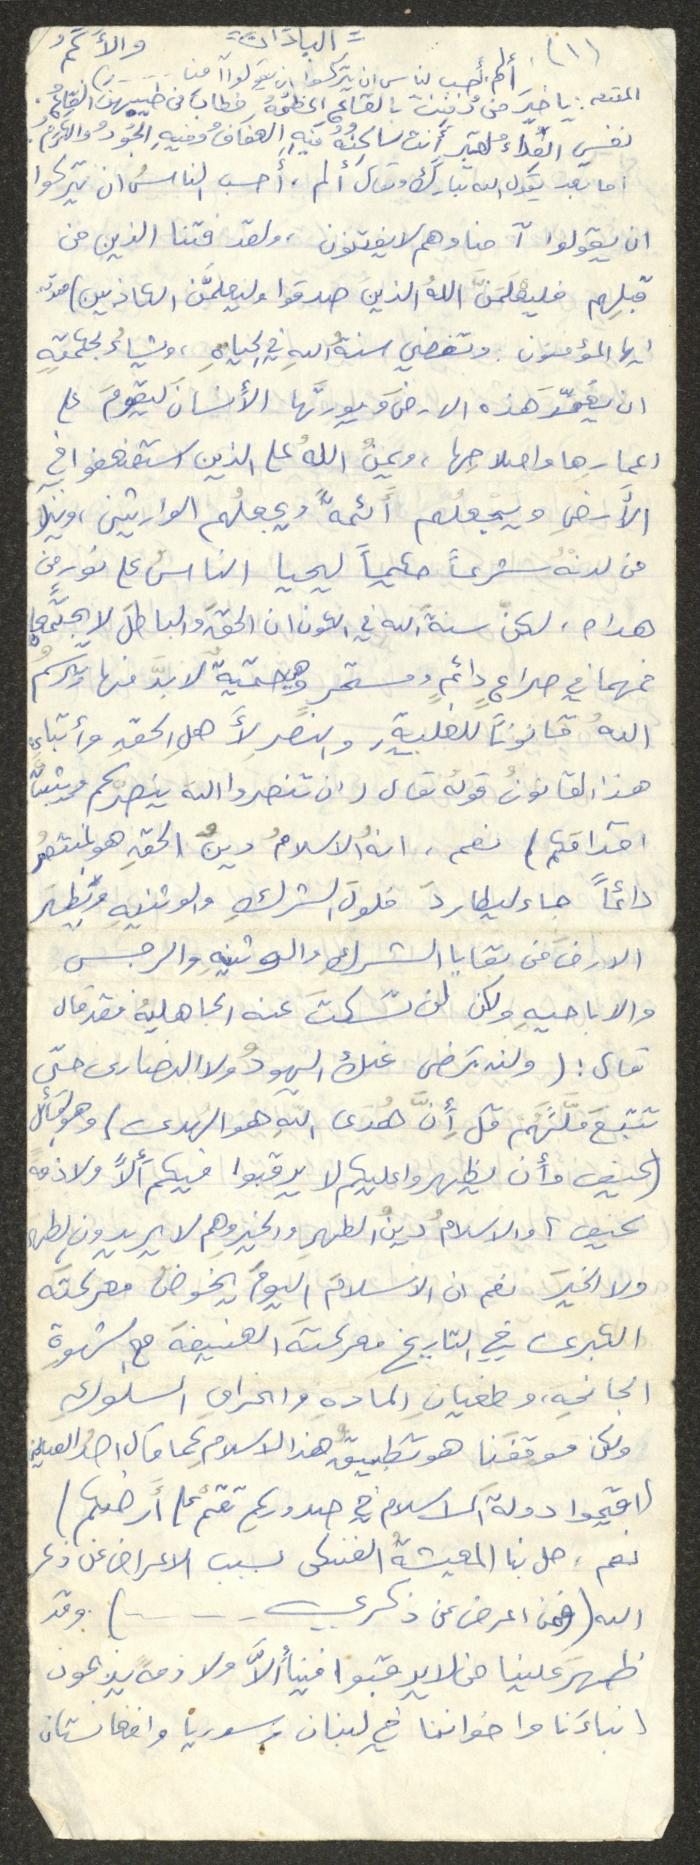 = البادات = والأكم
(١) ألم أحسب الناس ان يتركوا ان يقولوا آمنا - - - )
المقدمه: يا خيرَ من دُفنت بالقاعِ اعظمُهُ فطابَ من طيبهنَّ القاعُ
نفسي الفداءُ لقبرٍ أنت ساكنُهُ فيهِ العفافُ وفيهِ الجودُ والكرمُ
اما بعد يقول الله تبارك وتعالى ألم ، أحسب الناسُ ان يتركوا
ان يقولوا آمنا وهم لا يفتنون ، ولقد فتنا الذين من
قبلِهم فليعلمَنَّ اللهُ الذينَ صدقوا وليعلمَّن الكاذبين)
ايها المؤمنون . وتقضي سنةُ اللهِ في الحياةِ ، وشاءَ بحكمتِهِ
ان يعمّرَ هذه الارضَ ويورثَها الأنسانَ ليقومَ على
اعمارِها واصلاحِها ، ويمنُ اللهُ على الذين استضعفوا في
الأرضِ ويجعلُهم أئمةً ويجعلُهم الوارثين ،
من لدنْهُ شرعاً حكيماً ليحيا الناسُ على نورٍ من
هداه ، لكن سنةَ الله في الكون ان الحقَّ والباطلَ لا يجتمعا
فهما في صراعٍ دائمٍ ومستمرٍ وهي حتمية لا بدَّ منها ويرسُمُ
اللهُ قانوناً للغلبةِ والنصرِ لأَهلِ الحقِ وأتباعِ
هذا القانونُ قولُه تعالى (ان تنصروا الله ينصرْكم ويثبتْ
اقدامَكم) نعم ، انهُ الاسلامُ دينُ الحقِ هو المنتصرُ
دائماً جاء ليطاردَ فلولَ الشركِ والوثنيهِ ويُطهِّرَ
الارضَ من بقايا الشركِ والوثنيهِ والرجسِ
والاباحيهِ ولكن لن تسكتَ عنه الجاهليةُ فقد قال
تعالى : ( ولن ترضى عنك اليهودُ ولا النصارى حتى
تتبعَ ملَّتَهم قل أِنَّ هُدَى اللهِ هو الهدى) وهو القائل
(كيف وأن يظهروا عليكم لا يرقبوا فيكم ألاً ولا ذمةً
كيف ؟ والاسلامُ دينُ الطهرِ والخيرِ وهم لا يريدون الطهرَ
ولا الخيرَ نعم ان الاسلامَ اليومَ يخوضُ معركتَه
الكبرى في التاريخ معركتَه العنيفةَ مع الشهوةِ
الجانحهِ ، وطغيانِ المادهِ وانحرافِ السلوكِ
ولكن موقفنا هو تطبيقُ هذا الاسلام كما قال احدُ
(اقيموا دولةَ الاسلام في صدوركم تقمْ على أرضِكم)
نعم ، حل بنا المعيشةُ الضنكى بسبب الاعراض عن ذكر
الله (فمن اعرض عن ذكري - - - - ) وقد
ظهرَ علينا من لا يرقبوا فينا ألاَّ ولا ذمةً يذبحون
ابناءَنا واخواننا في لبنان وسوريا وافغانستان